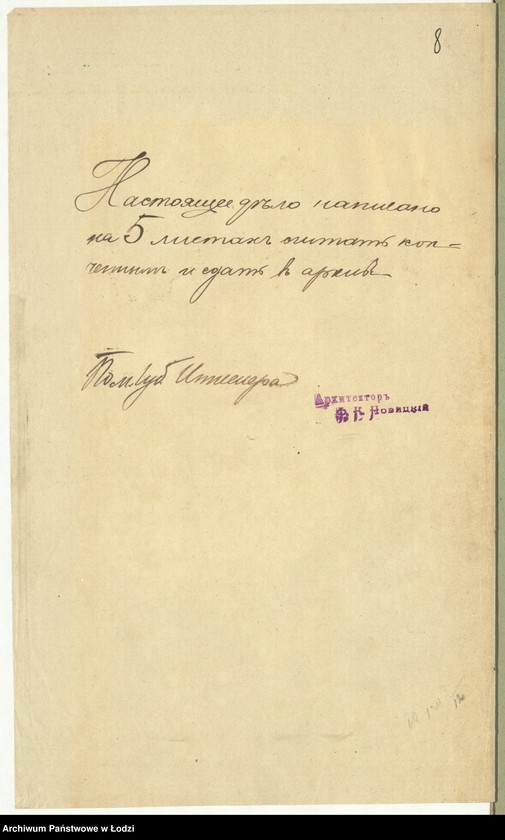 8
Настоящее дѣло написано
на 5 листахъ считать кон-
ченнымъ и сдать в архивъ
Пом. Губ. Инженера
Архитекторъ
Новицкій
Archiwum Państwowe w Łodzi